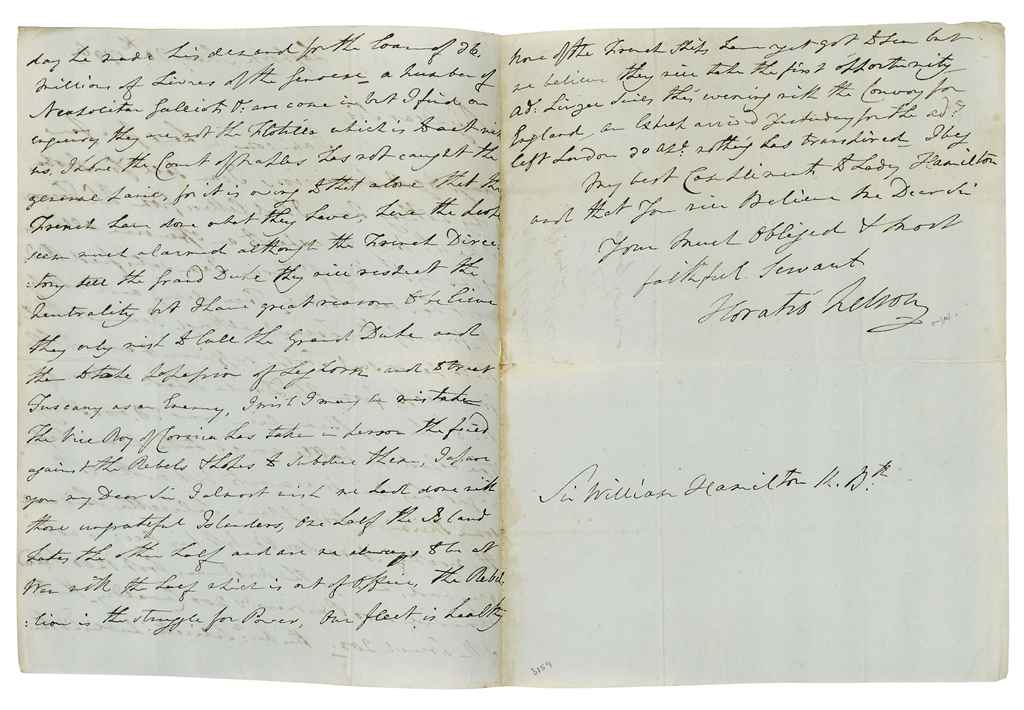 day he made his demand for the loan of 26
Millions of Livres of the Genoese a number of
Neapolitan Galliots &c. are come in but I find on
enquiry they are not the Flotilla which is to act with
us, I hope the Court of Naples has not caught the
general panic, for it is owing to that alone that the
French have done what they have, here the people
seem much alarmed although the French Direc-
:tory tell the Grand Duke they will respect the
Neutrality but I have great reason to believe
they only wish to lull the Grand Duke and
then to take Possession of Leghorn and to treat
Tuscany as an Enemy, I wish I may be mistaken
The Vice Roy of Corsica has taken in person the field
against the Rebels & hopes to subdue them, I assure
you my Dear Sir, I almost wish we had done with
those ungrateful Islanders, one half the Island
hates the other half and are we always to be at
War with the half which is out of Office, the Rebel-
:lion is the struggle for Power, Our fleet is healthy
None of the French Ships have yet got to Sea but
we believe they will take the first opportunity
Adl. Linzee sails this evening with the Convoy for
England, an Express arrived yesterday for the adl.
left London 20 Apl. nothing has transpired I beg
My best Compliments to Lady Hamilton
and that You will Believe Me Dear Sir
Your Much Obliged & most
faithful Servant
Horatio Nelson
Sir William Hamilton K. Bth
5154